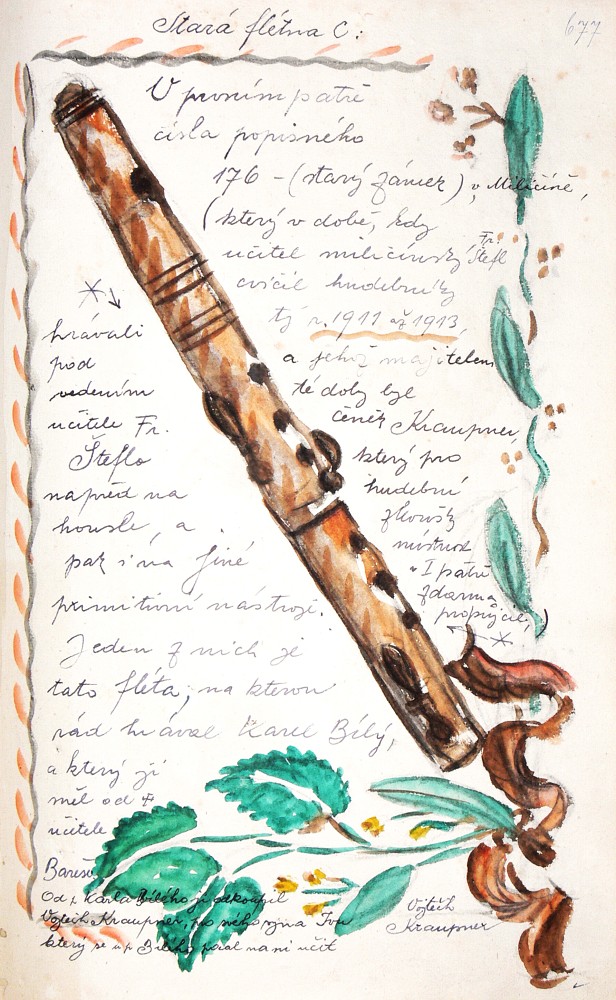 Stará flétna C:
677
V prvním patře
čísla popisného
176 - (starý zámek) v Miličíně,
(který v době, kdy
učitel miličínský Fr. Štefl
cvičil hudebníky
tý r. 1911 až 1913,
a jehož majitelem
té doby byl
Čeněk Kraupner,
který pro
hudební
zkoušky
místnost
v I patře
zdarma
propůjčil,
hrávali
pod
vedením
učitele Fr.
Štefla
napřed na
housle, a
pak i na jiné
primitivní nástroje.
Jeden z nich je
tato fléta, na kterou
rád hrával Karel Bílý,
a který ji
měl od †
učitele
Bareše.
Od p. Karla Bílého ji odkoupil
Vojtěch Kraupner, pro něho syna Ivu
který se u p. Bílého počal na ni učit
Vojtěch
Kraupner